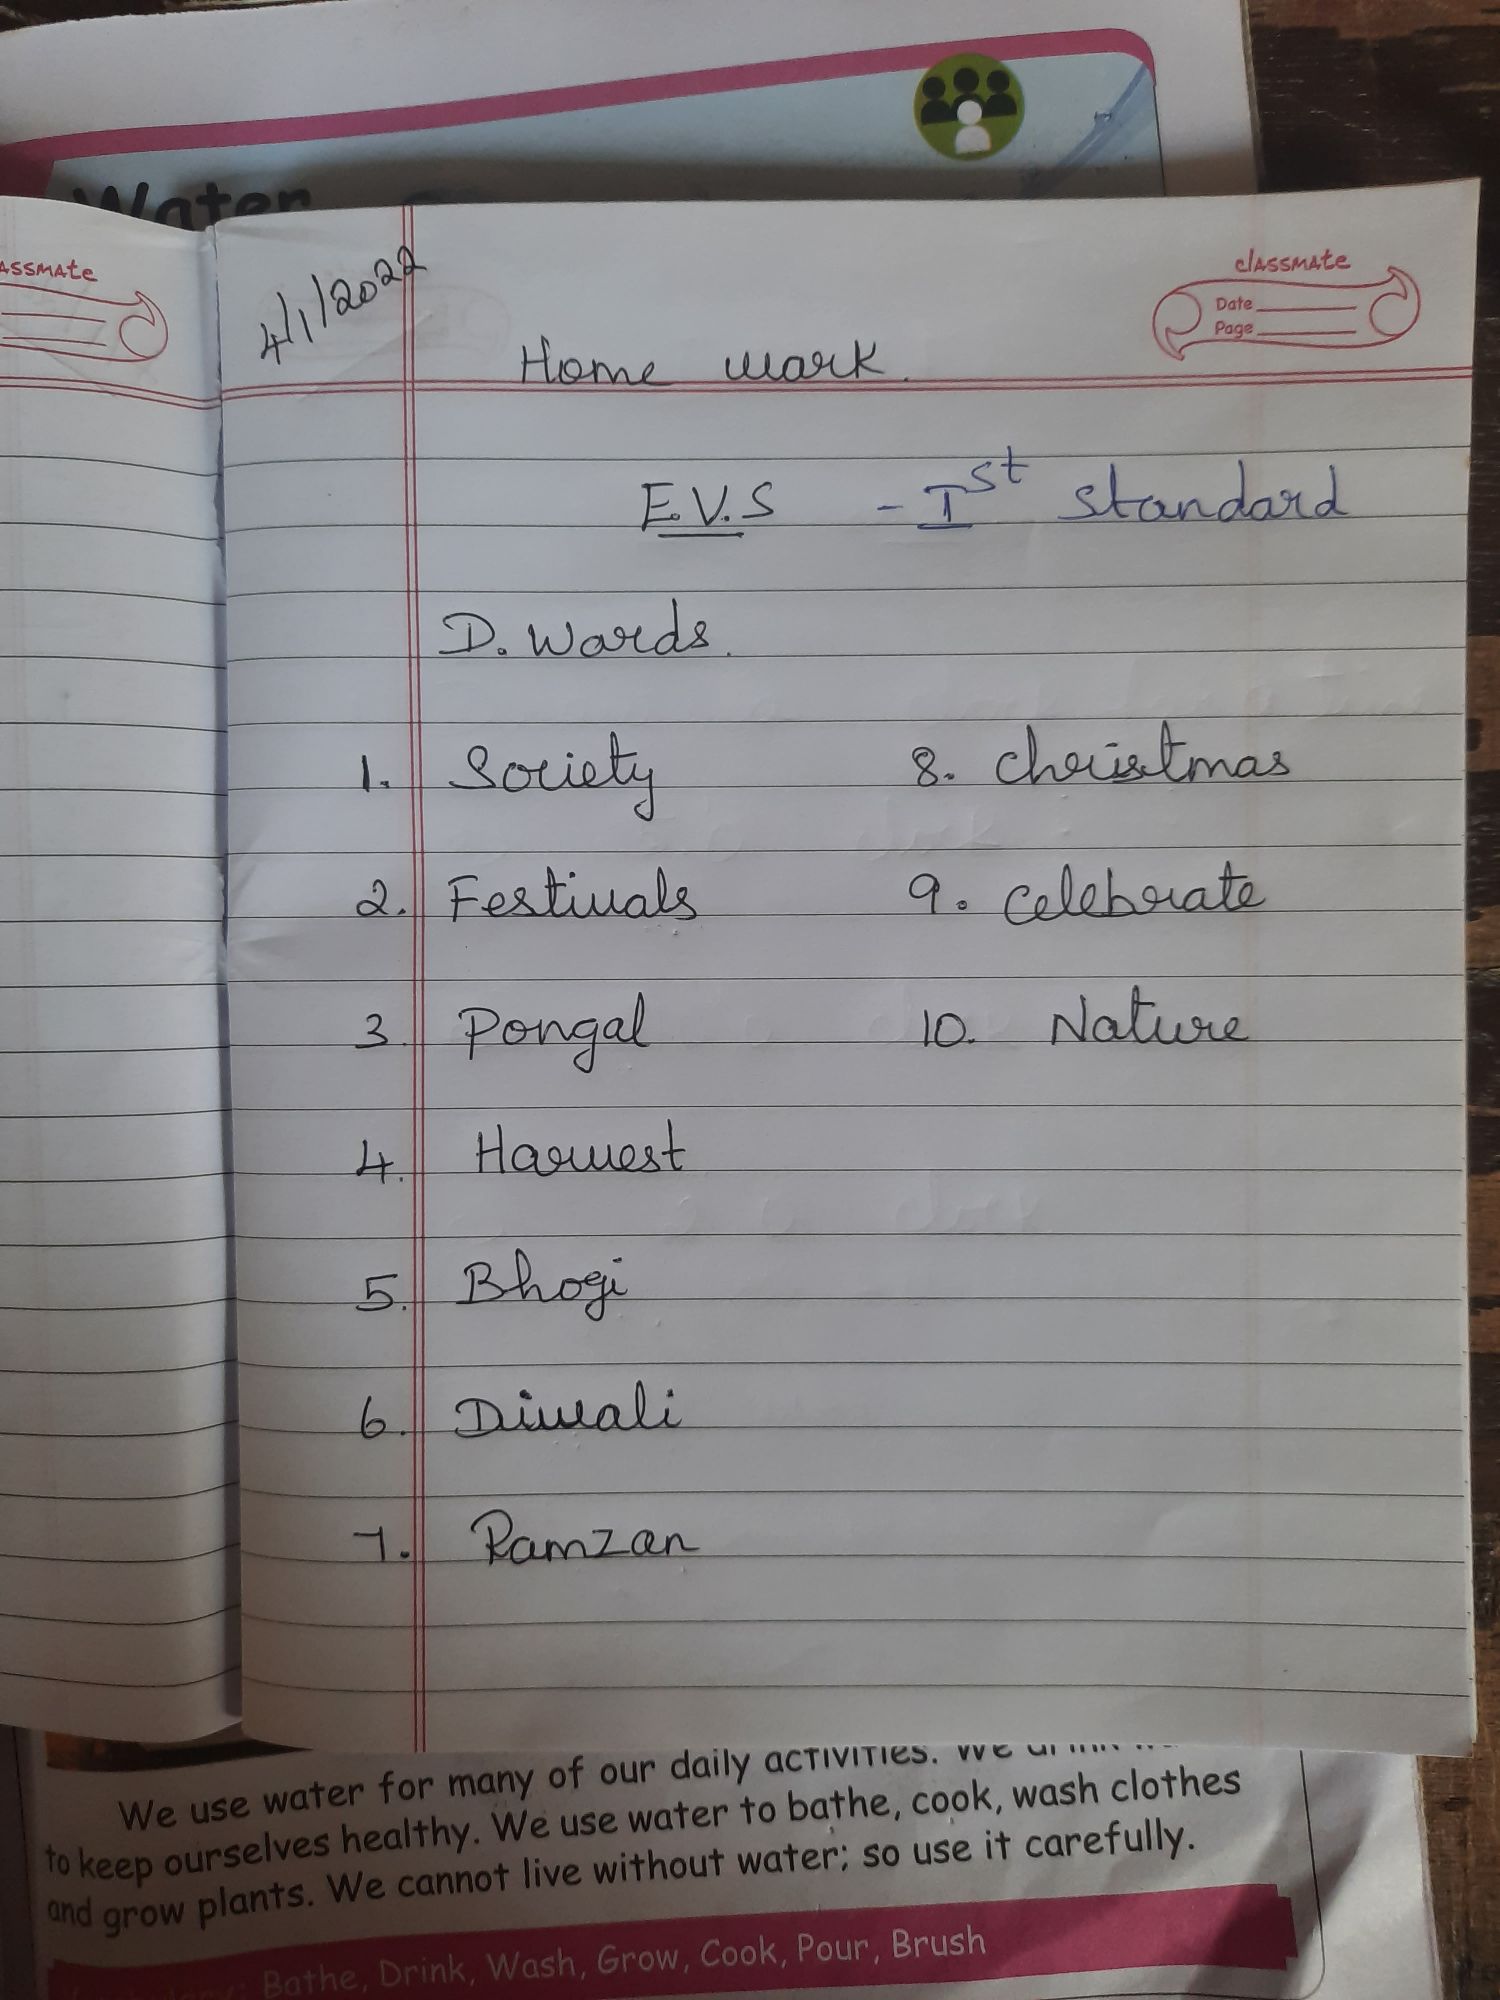 Water
ASSMAte
classmate
Date
Page
4/1/2022
Home work.
E.V.S - Ist standard
D. Words.
1. Society
8. christmas
2. Festivals
9. celebrate
3. Pongal
10. Nature
4. Harvest
5. Bhogi
6. Diwali
7. Ramzan
We use water for many of our daily activities. We
to keep ourselves healthy. We use water to bathe, cook, wash clothes
and grow plants. We cannot live without water; so use it carefully.
Bathe, Drink, Wash, Grow, Cook, Pour, Brush